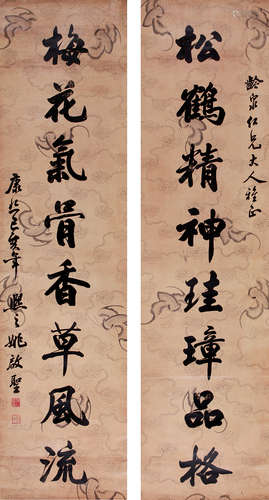 齡泉仁兄大人雅正
松鶴精神珪璋品格
梅花氣骨香草風流
康熙己亥年
熙之姚啟聖